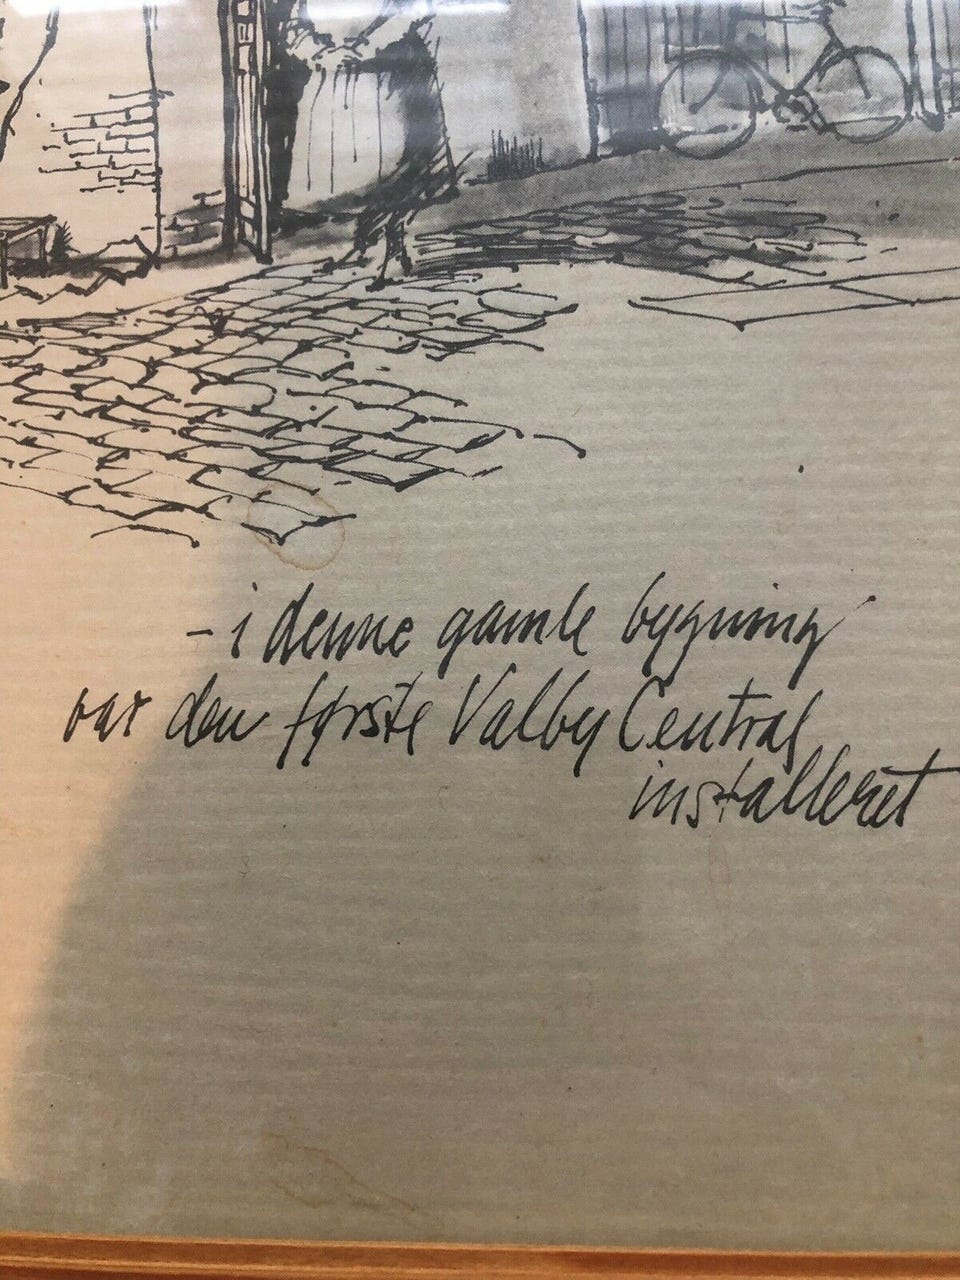 - i denne gamle bygning
var den første Valby Central
installeret